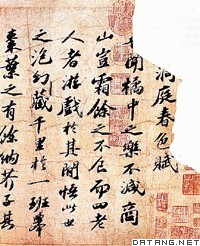 洞庭春色賦
聞橘中之樂不減商
山豈霜餘之不食而四老
人者游戲於其間悟此世
之泡幻藏千里於一班舉
棗葉之有餘納芥子其
DATANG.NET.CN